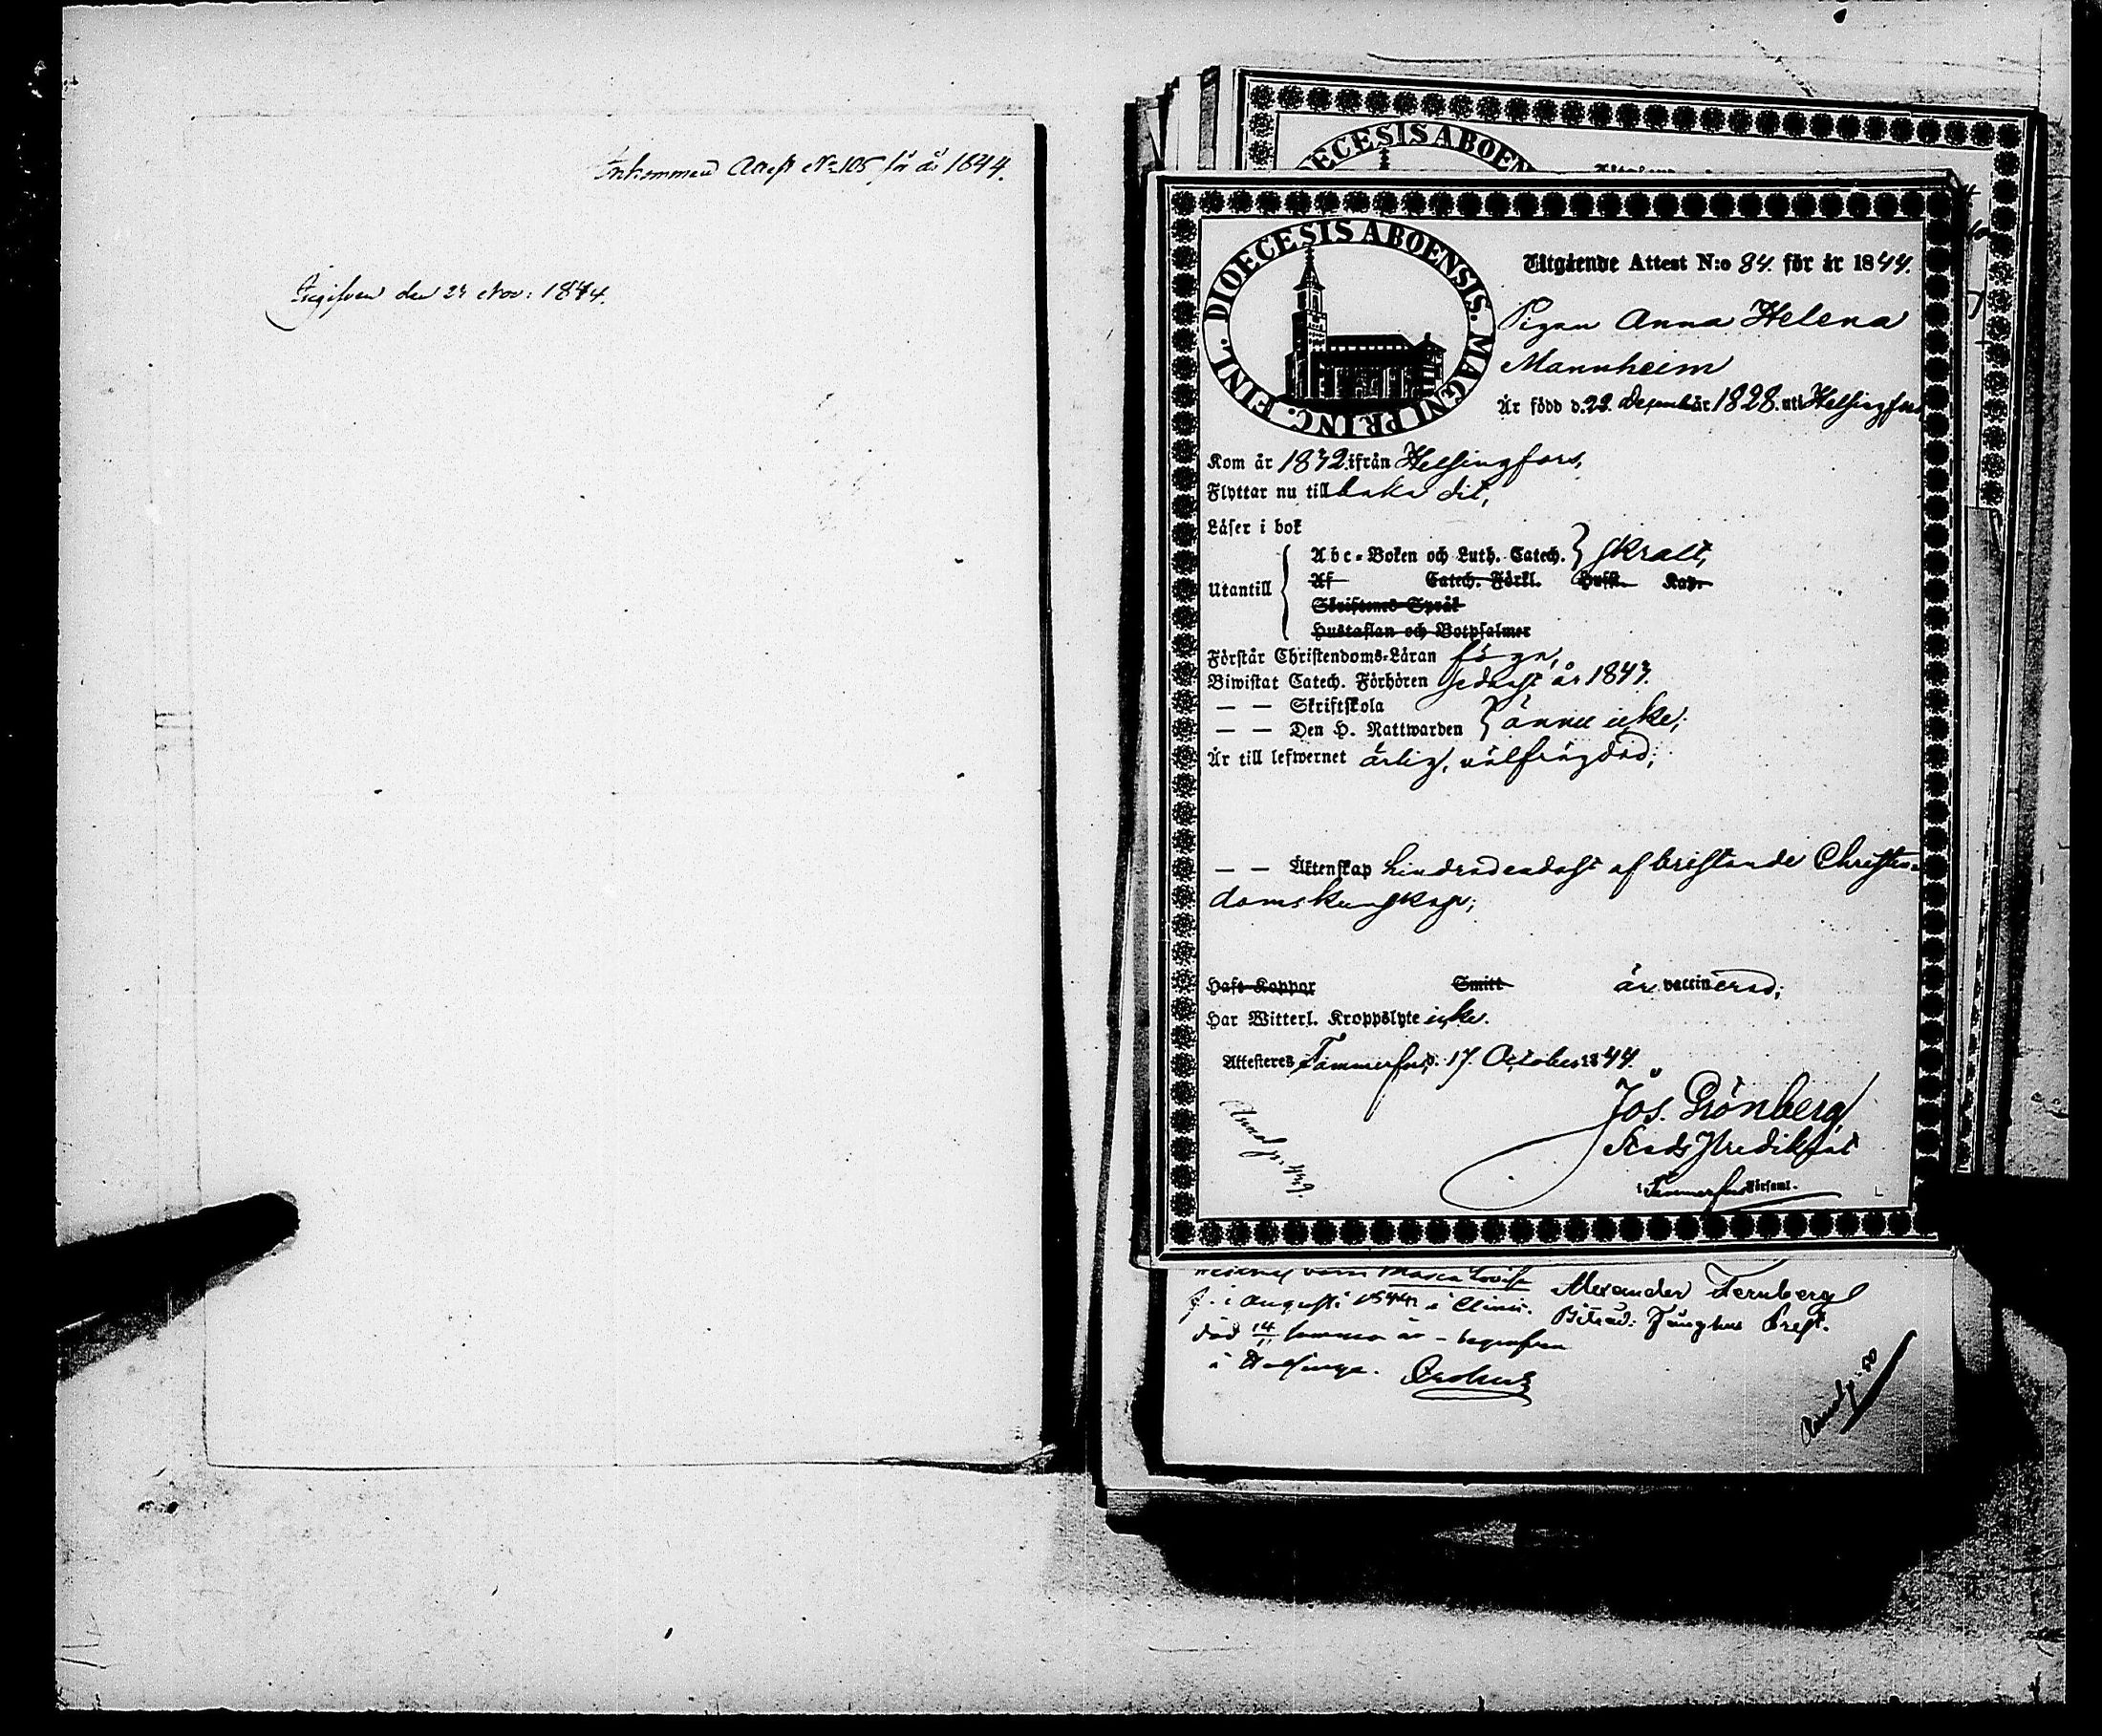 Inkommen Attest No 105 för år 1844.
Ingifven den 24 Nov: 1844.
DIOECESIS ABOEN
DIOECESIS ABOENSIS. MAGNI PRINC. FINL.
Utgående Attest N:o 84. för år 1844.
Pigan Anna Helena
Mannheim
Är född d. 22. December 1828. uti Helsingfors
Kom år 1832 ifrån Helsingfors,
Flyttar nu tillbaka dit,
Läser i bok
Abc-Boken och Luth. Catech. } skralt,
Utantill
Af Catech. Förkl. Huffl. Kap.
Skriftenes Språk
Hustaflan och Botpsalmer
Förstår Christendoms-Läran föga,
Biwistat Catech. Förhören sednast år 1843.
— — Skriftskola
— — Den H. Nattwarden } ännu icke;
Är till lefwernet ärlig, välfrägdad;
— — Äktenskap hindrad endast af bristande Christen-
domskunskap;
Haft Koppor Smitt är vaccinerad;
Har Witterl. Kroppslyte icke.
Attesteres Tammerfors d. 17. October 1844.
Jos. Grönberg
Stads Predikant
i Tammerfors Församl.
Annot p. 439.
barn Maria Lovisa
f. i Augusti 1844 å Clinic.
död 14/11 samma år - begrafven
i Helsinge.
Alexander Fernberg
Biträd: Fänghus Pred.
Annot p. 50